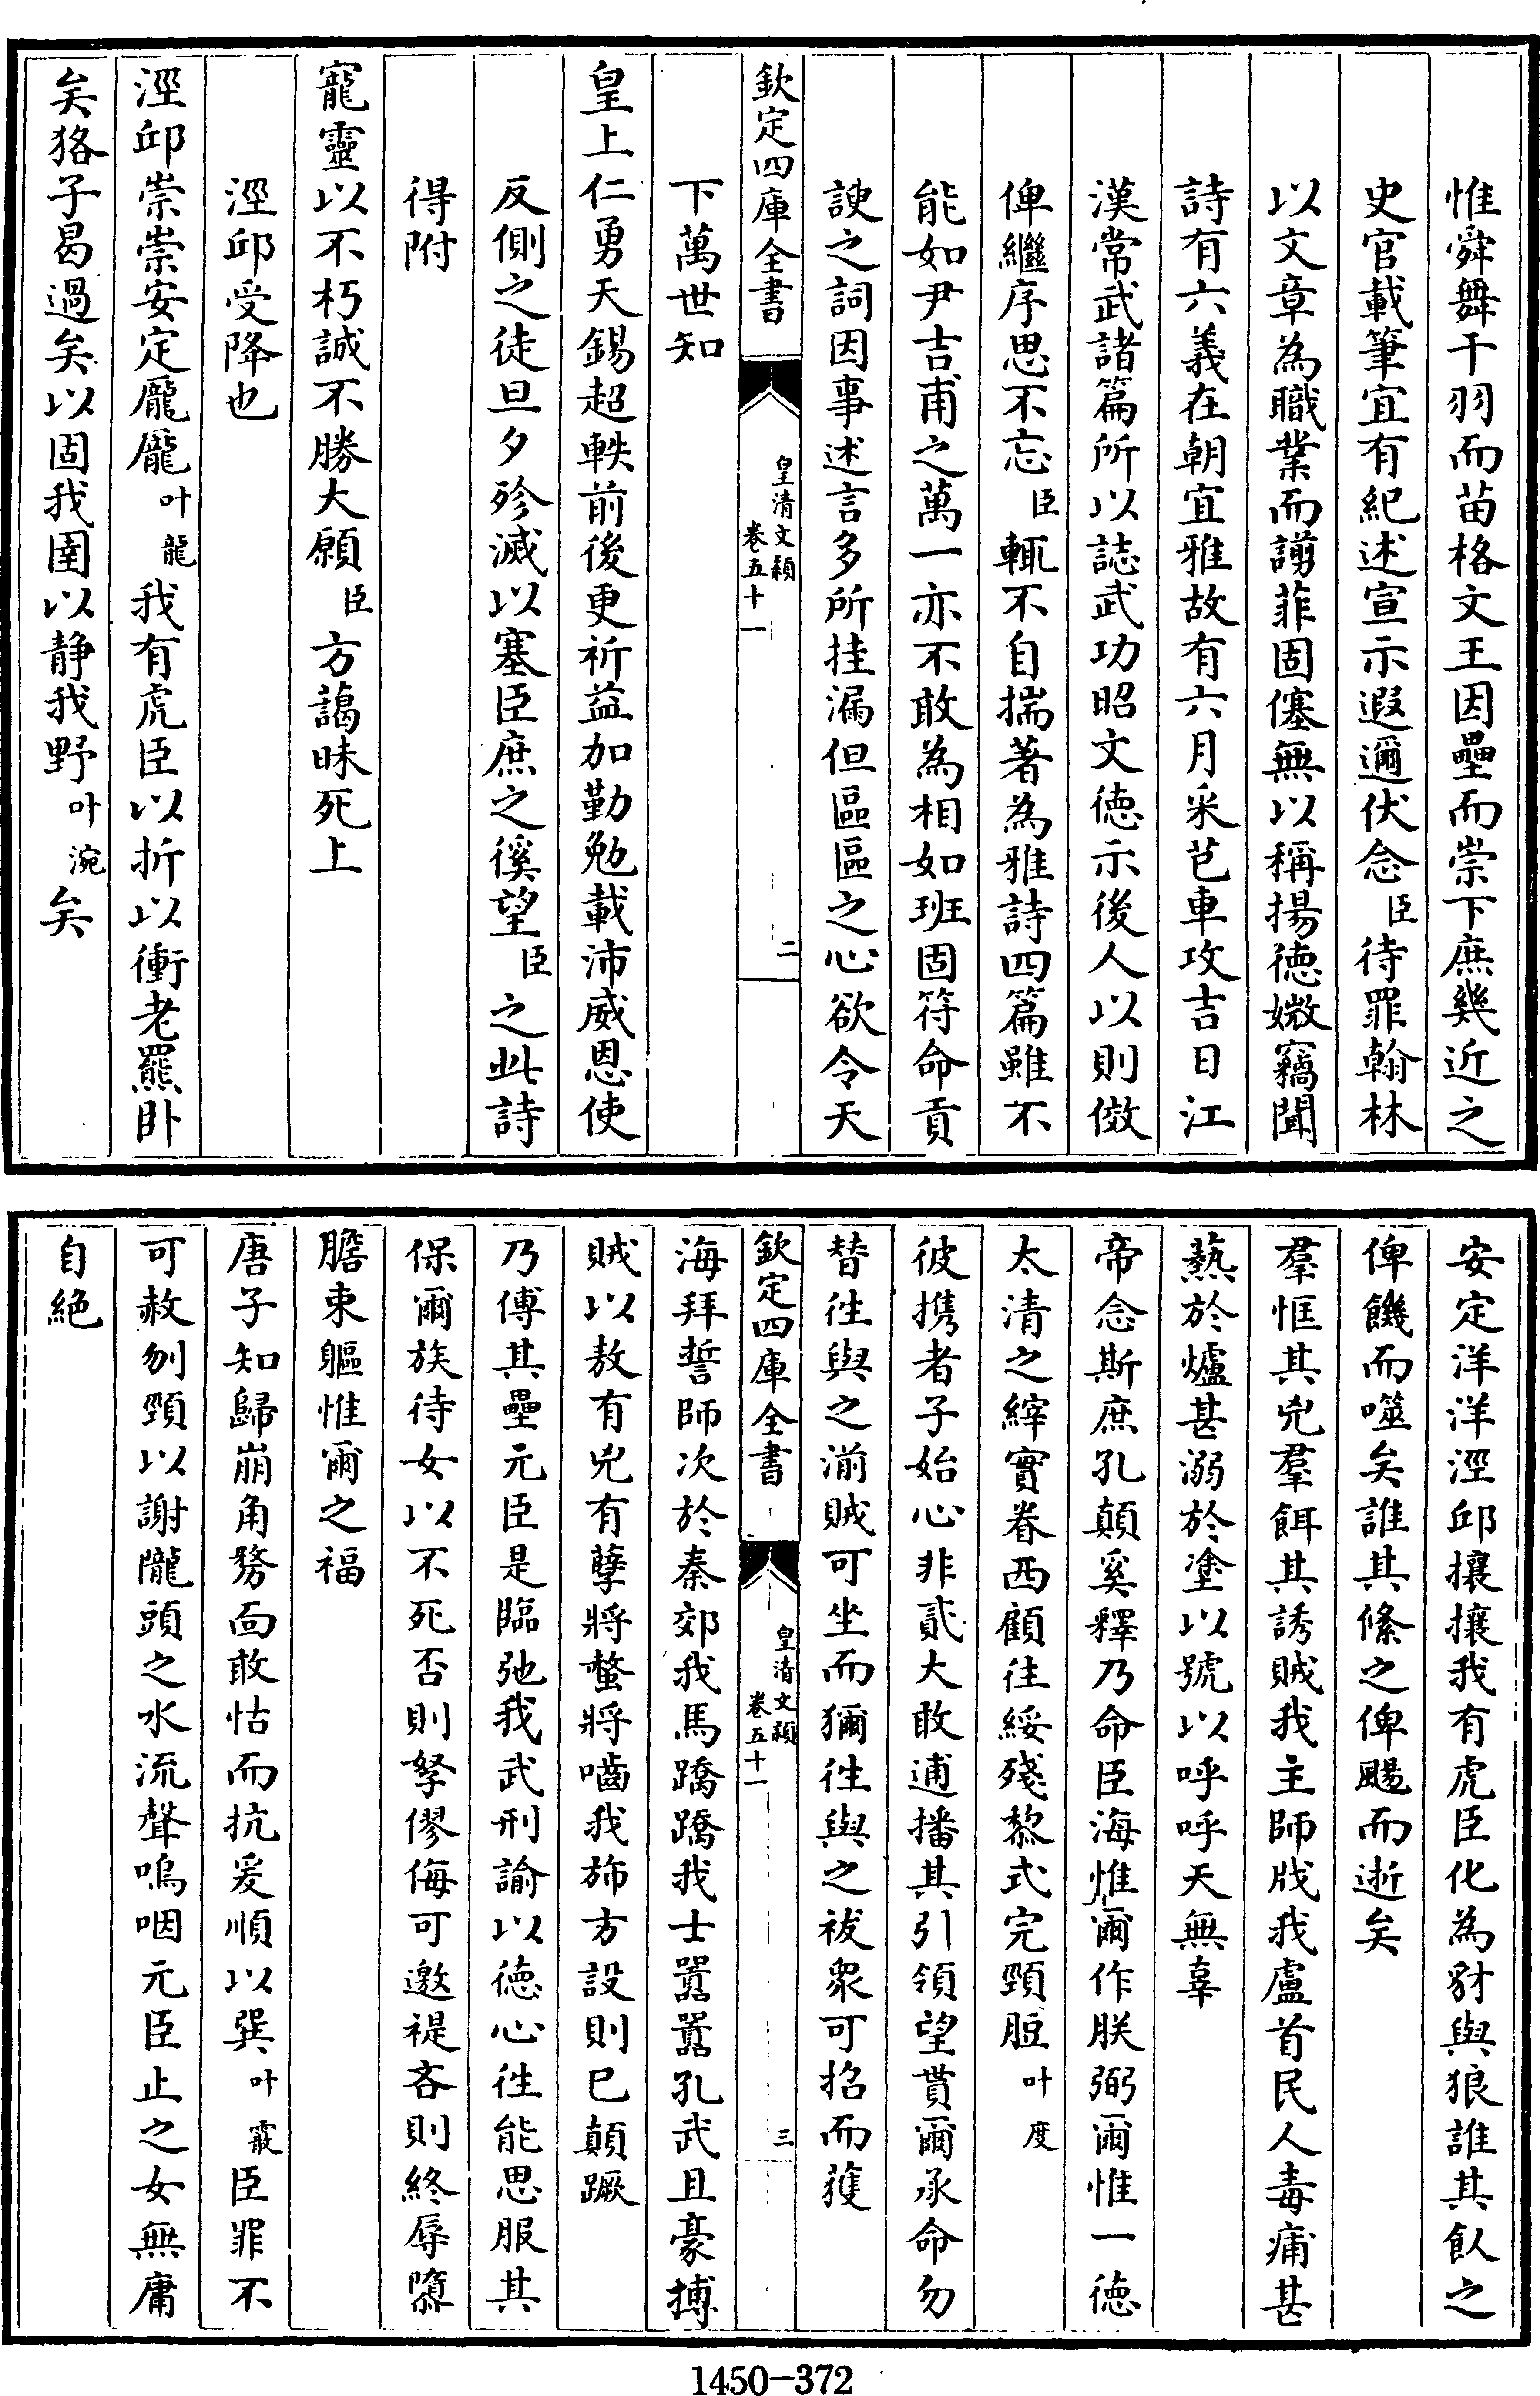 惟舜舞干羽而苗格文王因壘而崇下庶幾近之
史官載筆宜有紀述宣示遐邇伏念臣待罪翰林
以文章為職業而謭菲固僿無以稱揚德媺竊聞
詩有六義在朝宜雅故有六月采芑車攻吉日江
漢常武諸篇所以誌武功昭文德示後人以則傚
俾繼序思不忘臣輒不自揣著為雅詩四篇雖不
能如尹吉甫之萬一亦不敢為相如班固符命貢
諛之詞因事述言多所挂漏但區區之心欲令天
欽定四庫全書
皇清文穎
卷五十一
二
下萬世知
皇上仁勇天錫超軼前後更祈益加勤勉載沛威恩使
反側之徒旦夕殄滅以塞臣庶之徯望臣之此詩
得附
寵靈以不朽誠不勝大願臣方藹昧死上
涇邱受降也
涇邱崇崇安定龐龐叶龍我有虎臣以折以衝老羆卧
矣狢子曷過矣以固我圉以靜我野叶涴矣
安定洋洋涇邱攘攘我有虎臣化為豺與狼誰其飤之
俾饑而噬矣誰其絛之俾颺而逝矣
羣恇其兇羣餌其誘賊我主師戕我盧首民人毒痡甚
熱於爐甚溺於塗以號以呼呼天無辜
帝念斯庶孔顛奚釋乃命臣海惟爾作朕弼爾惟一德
太清之縡實眷西顧往綏殘黎式完頸脰叶度
彼攜者子始心非貳大敢逋播其引領望貰爾承命勿
替往與之湔賊可坐而獮往與之祓衆可招而獲
欽定四庫全書
皇清文穎
卷五十一
三
海拜誓師次於秦郊我馬蹻蹻我士嚻嚻孔武且豪搏
賊以敖有兇有孽將螫將嚙我斾方設則已顛蹶
乃傅其壘元臣是臨弛我武刑諭以德心往能思服其
保爾族待女以不死否則拏僇侮可邀禔吝則終辱隳
膽束軀惟爾之福
唐子知歸崩角剺面敢怙而抗爰順以巽叶霰臣罪不
可赦刎頸以謝隴頭之水流聲嗚咽元臣止之女無庸
自絕
1450-372